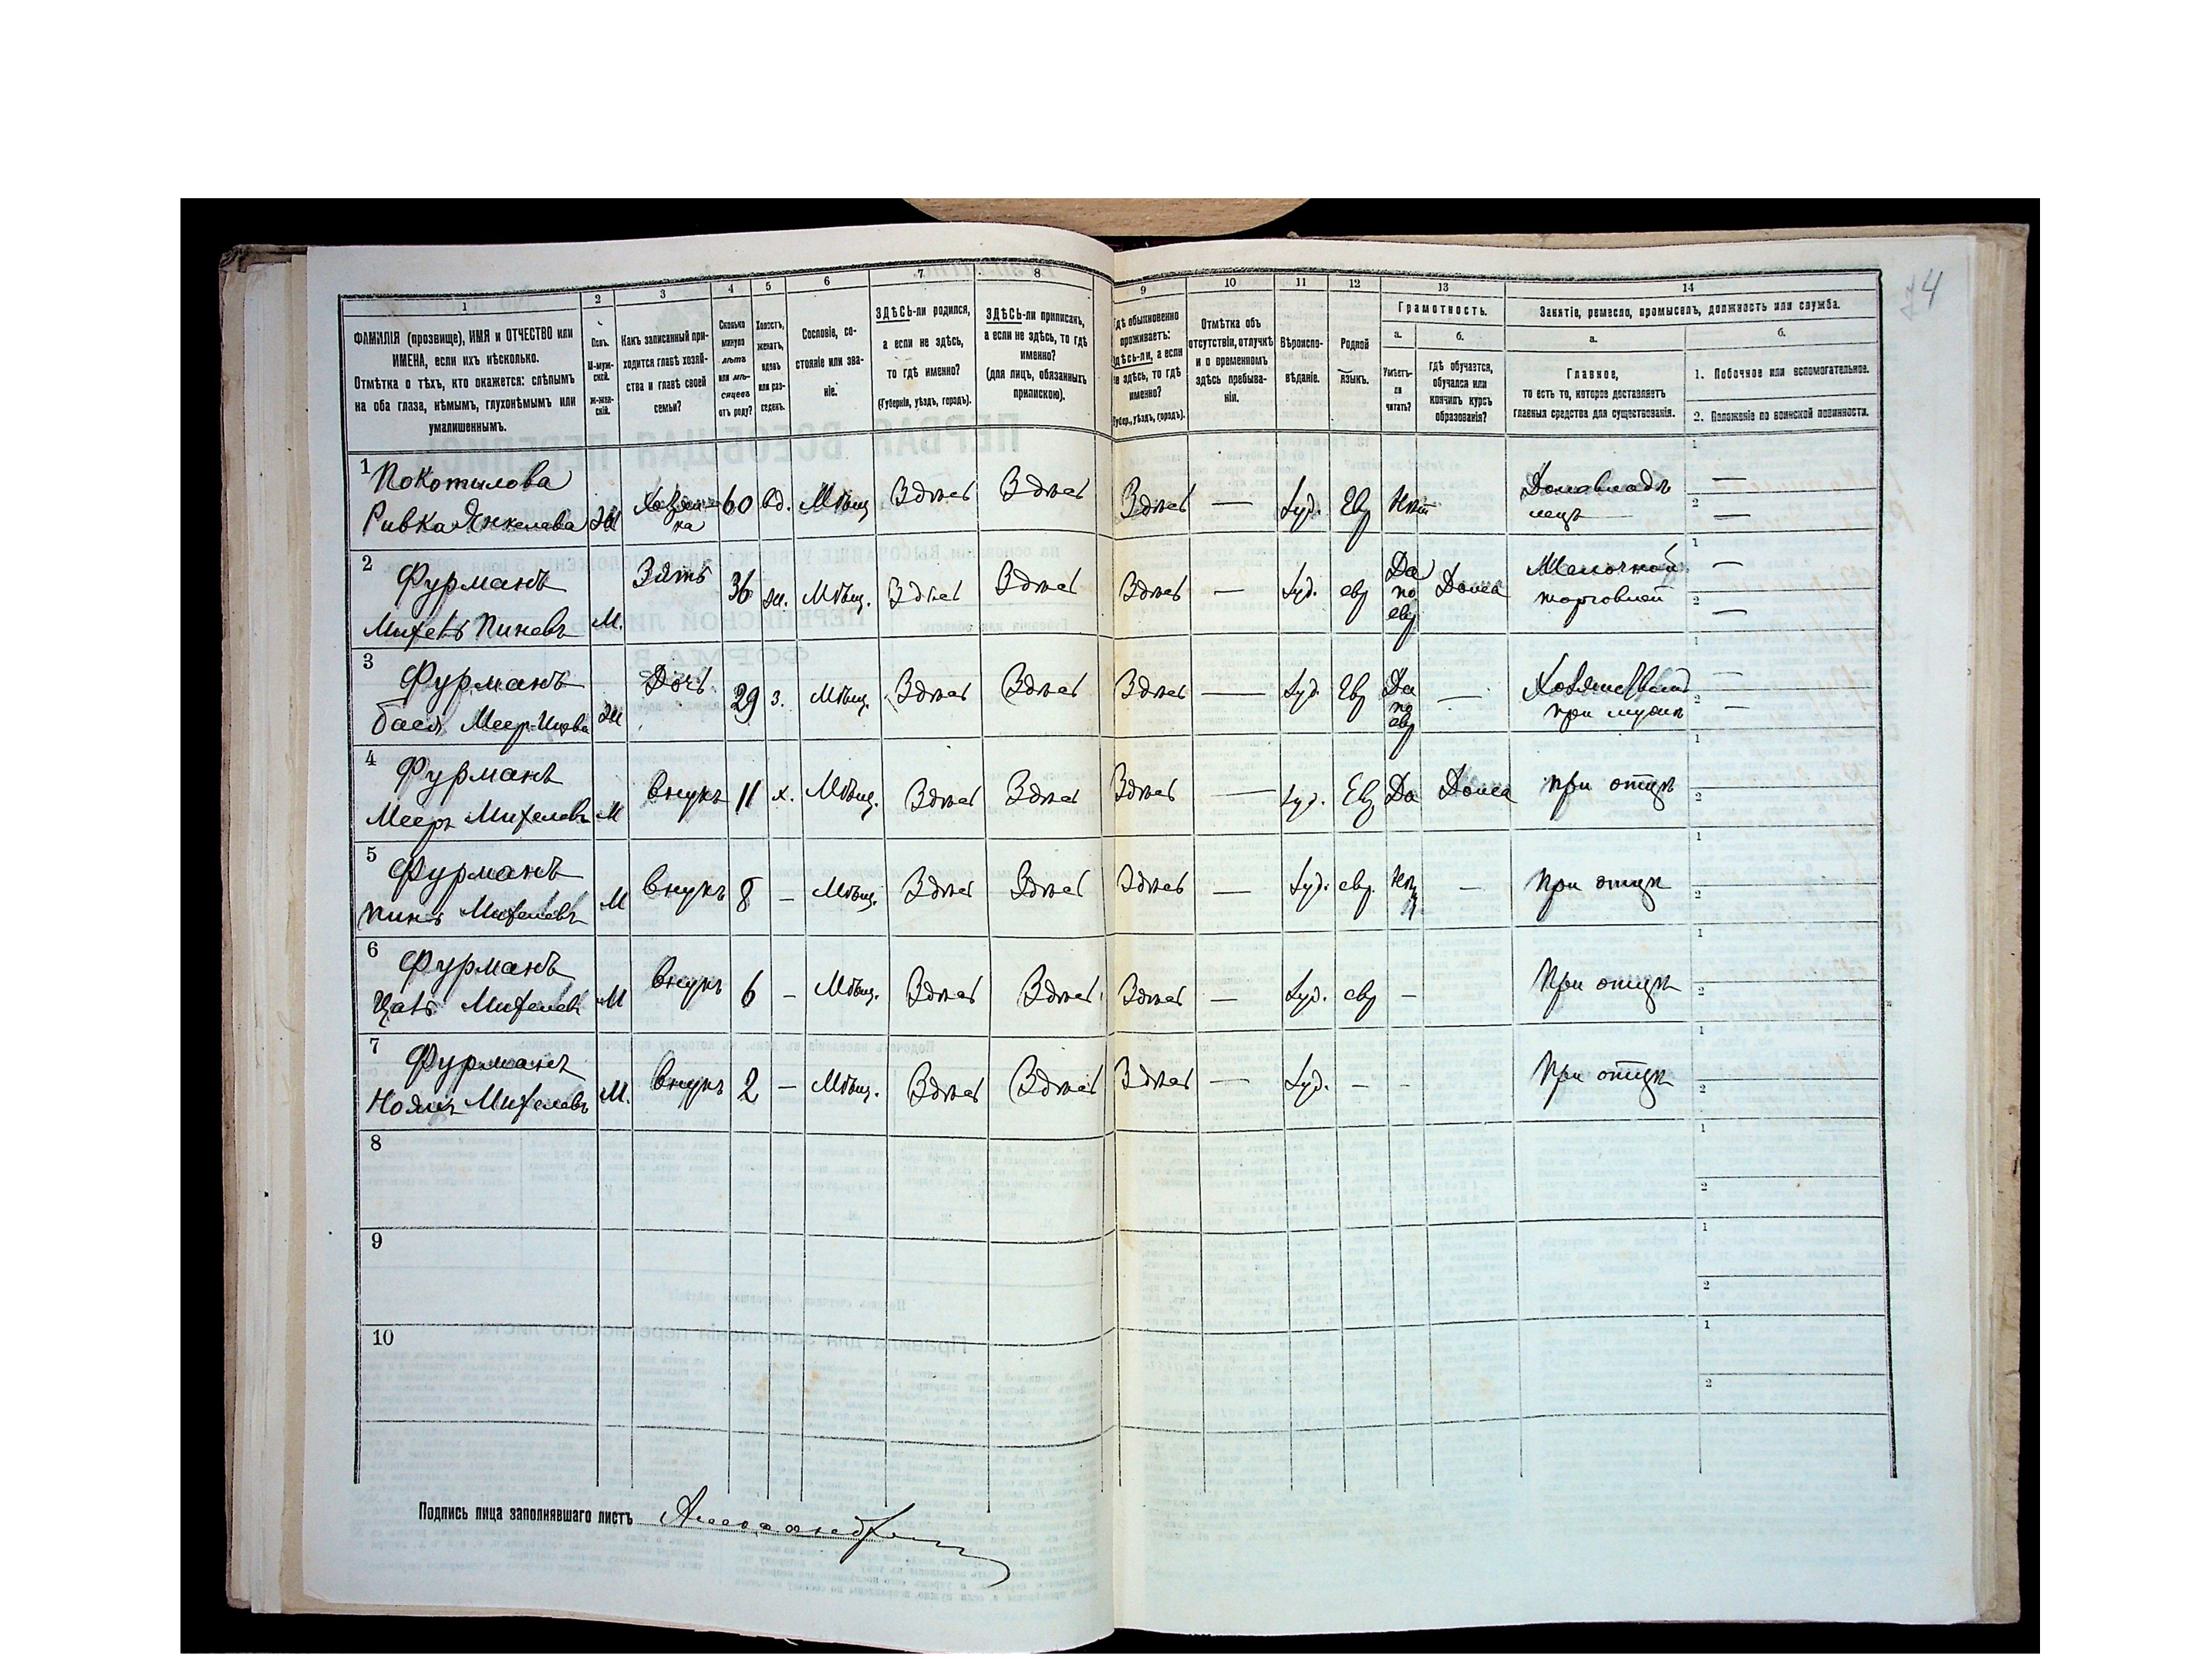 74
1 2 3 4 5 6 7 8 9 10 11 12 13 14
ФАМИЛІЯ (прозвище), ИМЯ и ОТЧЕСТВО или
ИМЕНА, если ихъ нѣсколько.
Отмѣтка о тѣхъ, кто окажется: слѣпымъ
на оба глаза, нѣмымъ, глухонѣмымъ или
умалишеннымъ.
Полъ.
М-муж-
ской.
Ж-жен-
скій.
Какъ записанный при-
ходится главѣ хозяй-
ства и главѣ своей
семьи?
Сколько
минуло
лѣтъ
или мѣ-
сяцевъ
отъ роду?
Холостъ,
женатъ,
вдовъ
или раз-
веденъ.
Сословіе, со-
стояніе или зва-
ніе.
ЗДѢСЬ-ли родился,
а если не здѣсь,
то гдѣ именно?
(Губернія, уѣздъ, городъ).
ЗДѢСЬ-ли приписанъ,
а если не здѣсь, то гдѣ
именно?
(для лицъ, обязанныхъ
припискою).
Гдѣ обыкновенно
проживаетъ:
здѣсь-ли, а если
не здѣсь, то гдѣ
именно?
(Губер., уѣздъ, городъ).
Отмѣтка объ
отсутствіи, отлучкѣ
и о временномъ
здѣсь пребыва-
ніи.
Вѣроиспо-
вѣданіе.
Родной
языкъ.
Грамотность.
а.
Умѣетъ-
ли
читать?
б.
гдѣ обучается,
обучался или
кончилъ курсъ
образованія?
Занятіе, ремесло, промыселъ, должность или служба.
а.
Главное,
то есть то, которое доставляетъ
главныя средства для существованія.
б.
1. Побочное или вспомогательное.
2. Положеніе по воинской повинности.
1 Покотилова Хозяй- 60 вд. Мѣщ. Здѣсь Здѣсь Здѣсь — Іуд. Евр Нѣт Домовладѣ 1 —
Ривка Янкелева Ж ка лецъ 2 —
2 Фурманъ Зять 36 ж. Мѣщ. Здѣсь Здѣсь Здѣсь — Іуд. евр Да по евр Дома Мелочной 1 —
Михель Пиневъ М. торговлей 2 —
3 Фурманъ Дочь 29 з. Мѣщ. Здѣсь Здѣсь Здѣсь — Іуд. Евр Да по евр — 1 —
Бася Ж при мужѣ 2 —
4 Фурманъ Внукъ 11 х. Мѣщ. Здѣсь Здѣсь Здѣсь — Іуд. Евр Да Дома При отцѣ 1
Мееръ Михелевъ М 2
5 Фурманъ Внукъ 8 — Мѣщ. Здѣсь Здѣсь Здѣсь — Іуд. евр. — При отцѣ 1
Пинь Михелевъ М 2
6 Фурманъ Внукъ 6 — Мѣщ. Здѣсь Здѣсь Здѣсь — Іуд. евр — При отцѣ 1
Михелевъ М 2
7 Фурманъ Внукъ 2 — Мѣщ. Здѣсь Здѣсь Здѣсь — Іуд. — — При отцѣ 1
Михелевъ М. 2
8 1
2
9 1
2
10 1
2
Подпись лица заполнявшаго листъ